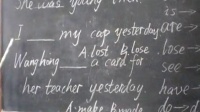 She was young then.
is—
I ___ my cap yesterday
are—
A lost B. lose
lose—
Wanghing ___ a card for
see—
her teacher yesterday.
have—
A. make B. made
do—d